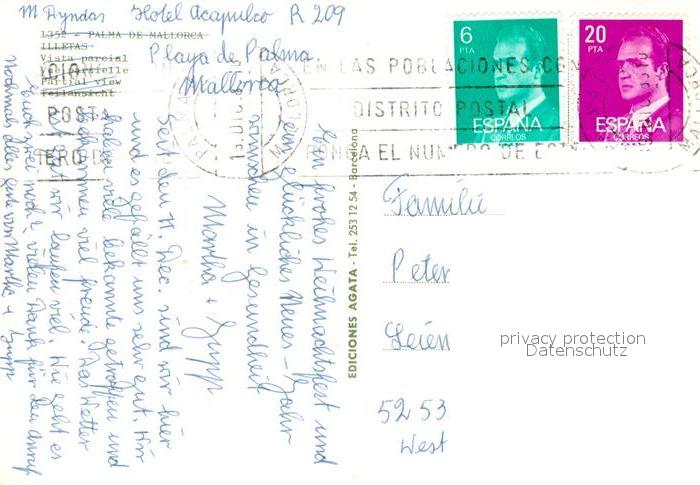 M Ryndas Hotel Acapulco R 209
Playa de Palma
Mallorca
1352 - PALMA DE MALLORCA
ILLETAS
Vista parcial
Vue partielle
Partial view
Teilansicht
Ein frohes Weihnachtsfest und
ein glückliches Neues-Jahr
wünschen in Gesundheit
Martha + Zupp
Seit den 11. Dec. sind wir hier
und es gefällt uns sehr gut. Wir
haben viele bekannte getroffen und
zusammen viel freude. Das Wetter
ist gut wir laufen viel. Wie geht es
Euch noch? vielen Dank für den Anruf
Nochmals Alles gute von Martha + Zupp
EDICIONES AGATA - Tel. 253 12 54 - Barcelona
EN LAS POBLACIONES CON
DISTRITO POSTAL
PONGA EL NUMERO DE ESTE
6
PTA
ESPAÑA
CORREOS
20
PTA
ESPAÑA
CORREOS
Familie
Peter
Leien
5253
West
privacy protection
Datenschutz